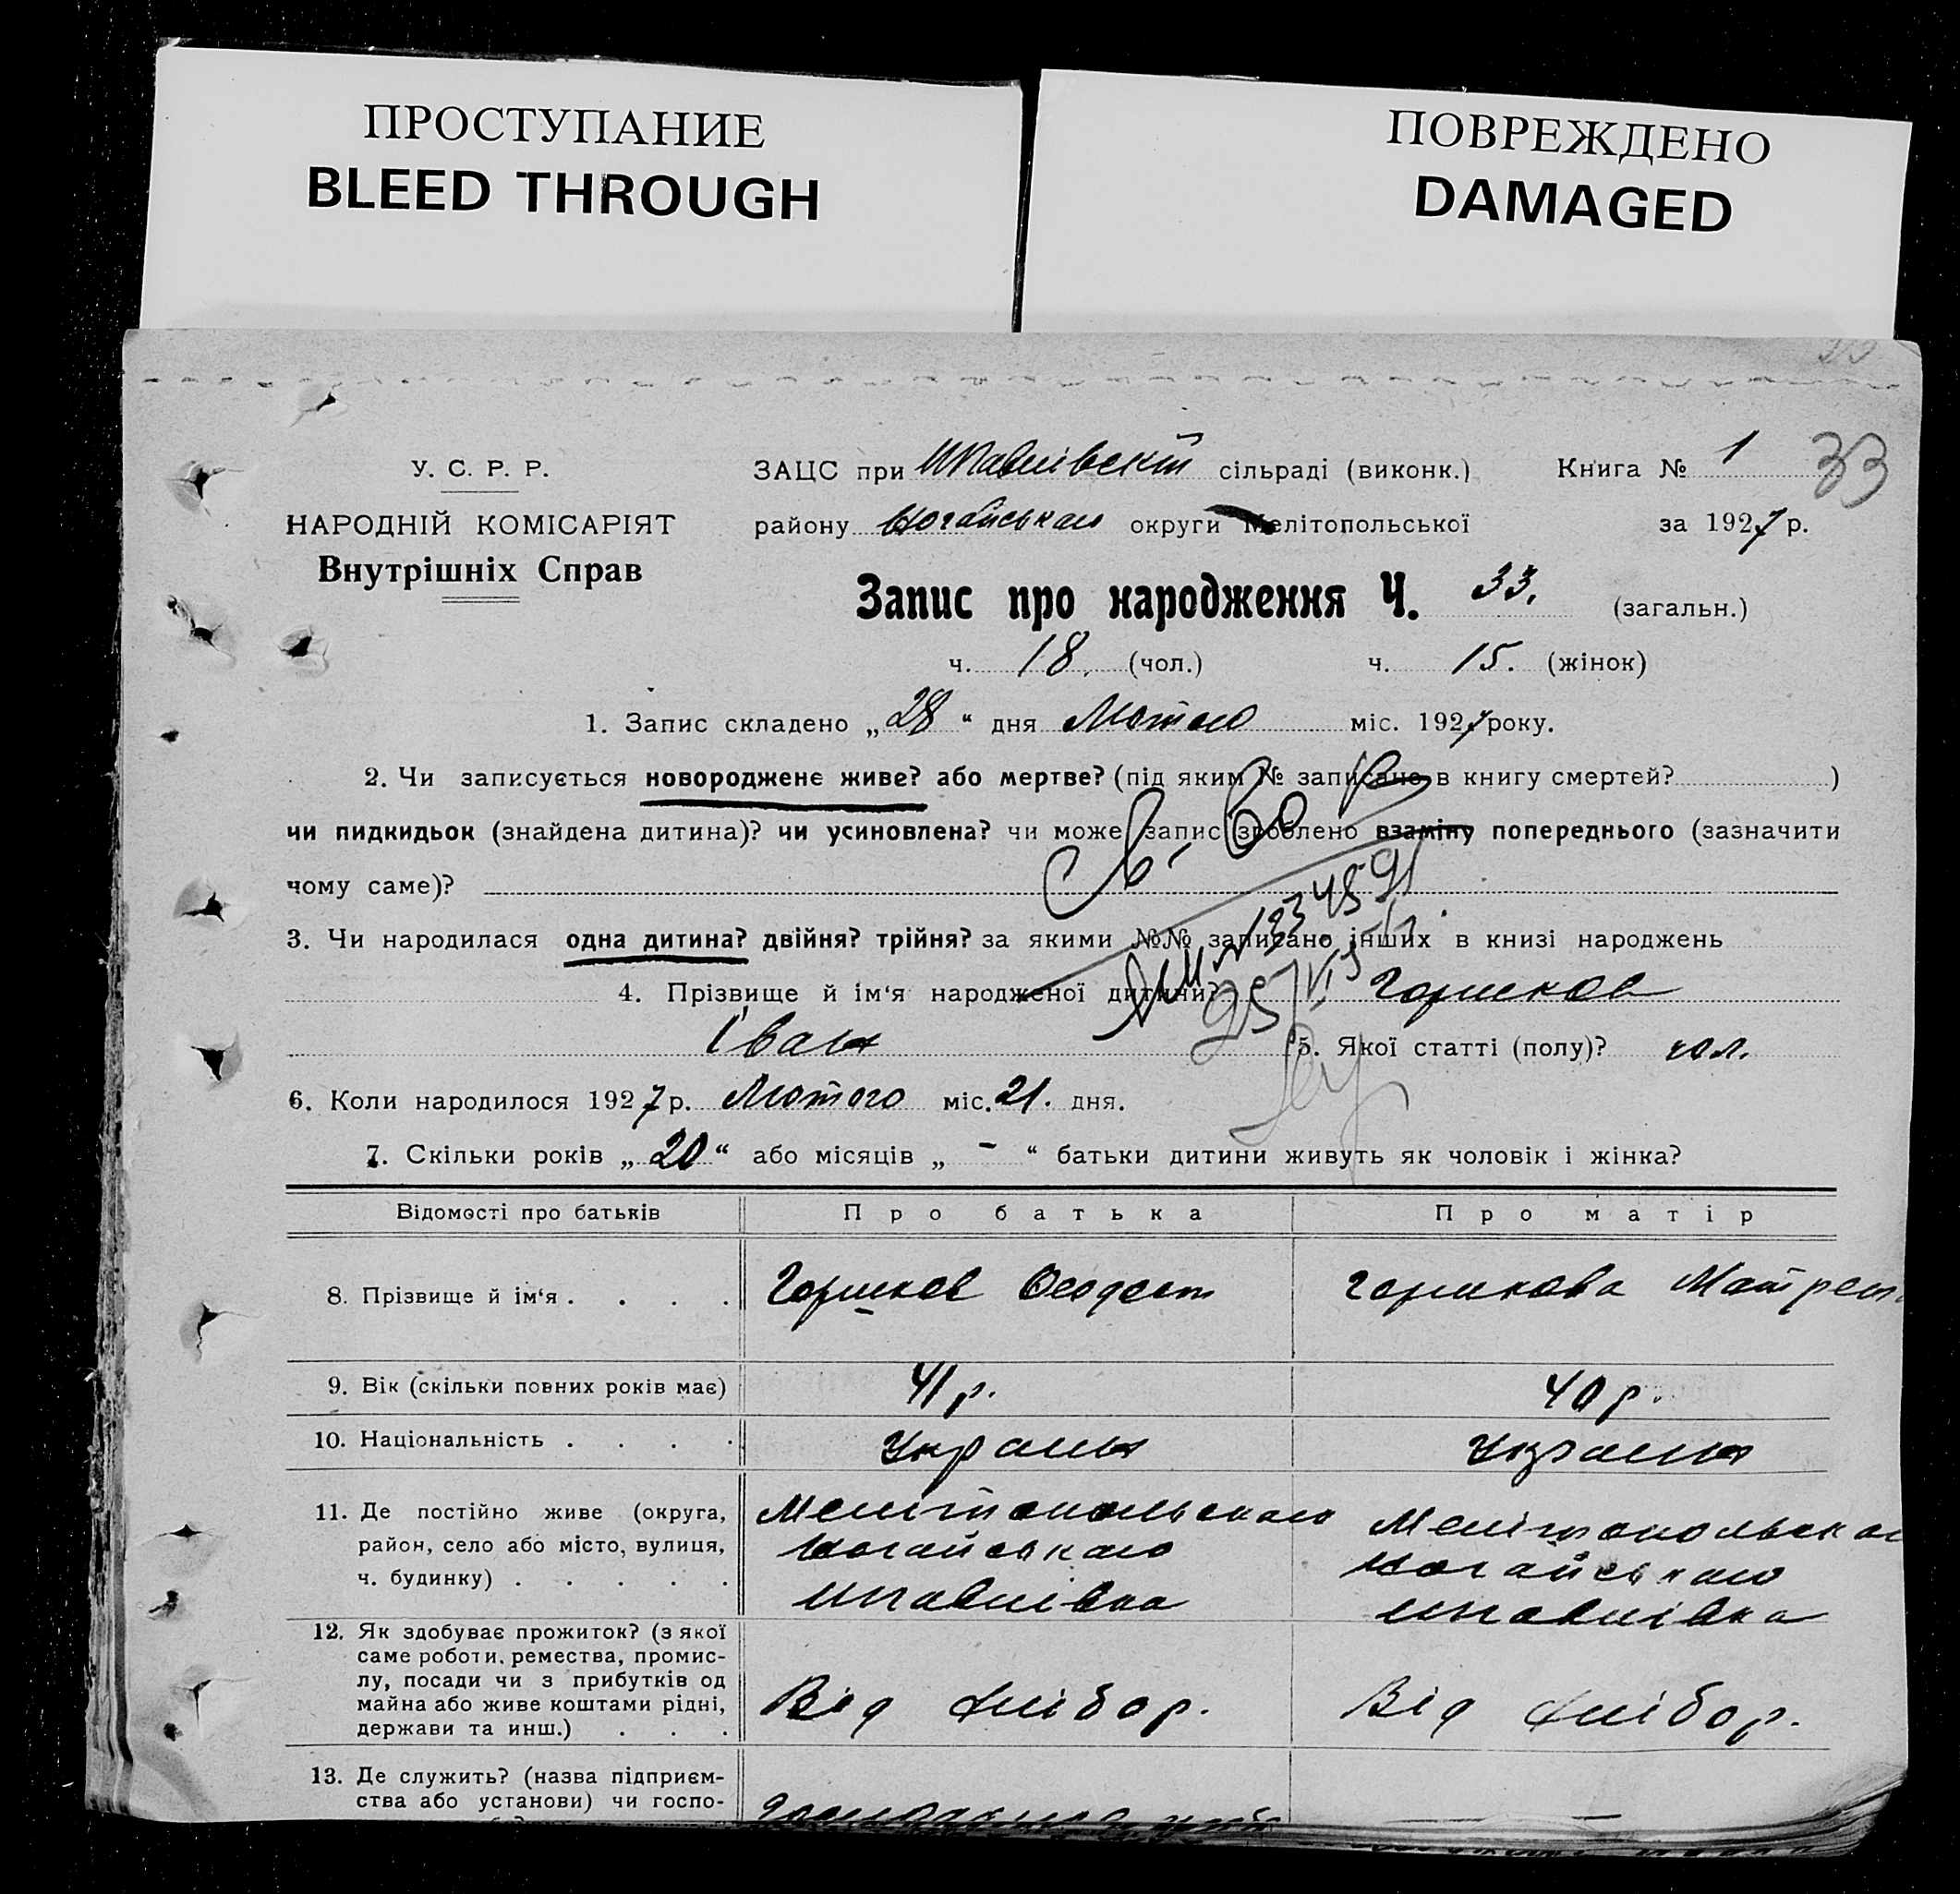 ПРОСТУПАНИЕ
BLEED THROUGH
ПОВРЕЖДЕНО
DAMAGED
У. С. Р. Р.
НАРОДНІЙ КОМІСАРІЯТ
Внутрішніх Справ
ЗАЦС при сільраді (виконк.) Книга № 1 33
району Ногайського округи Мелітопольської за 1927 р.
Запис про народження Ч. 33. (загальн.)
ч. 18. (чол.) ч. 15. (жінок)
1. Запис складено „28“ дня Лютого міс. 1927 року.
2. Чи записується новороджене живе? або мертве? (під яким № записано в книгу смертей? )
чи пидкидьок (знайдена дитина)? чи усиновлена? чи може запис зроблено взаміну попереднього (зазначити
чому саме)?
3. Чи народилася одна дитина? двійня? трійня? за якими №№ записано інших в книзі народжень
4. Прізвище й ім'я народженої дитини? Горшков
Іван 5. Якої статті (полу)? чол.
6. Коли народилося 1927 р. Лютого міс. 21. дня.
7. Скільки років „20“ або місяців „-“ батьки дитини живуть як чоловік і жінка?
Відомості про батьків Про батька Про матір
8. Прізвище й ім'я . . . . Горшков Феодот Горшкова Матрен
9. Вік (скільки повних років має) 41 р. 40 р.
10. Національність . . . . Украин Украин
11. Де постійно живе (округа,
район, село або місто, вулиця,
ч. будинку) . . . . .
Мелітопольського
Ногайського
Мелітопольськог
Ногайського
12. Як здобуває прожиток? (з якої
саме роботи, ремества, промис-
лу, посади чи з прибутків од
майна або живе коштами рідні,
держави та инш.) . . .
Від хлібор. Від хлібор.
13. Де служить? (назва підприєм-
ства або установи) чи госпо-